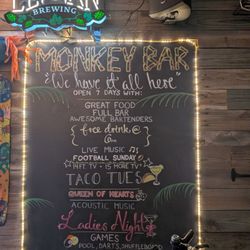 BREWING
MONKEY BAR
"We have it all here"
OPEN 7 DAYS WITH:
GREAT FOOD
FULL BAR
AWESOME BARTENDERS
free drink@
LIVE MUSIC
FOOTBALL SUNDAY
TACO TUES
QUEEN OF HEARTS
ACOUSTIC MUSIC
Ladies Night
GAMES
POOL, DARTS, SHUFFLEBOARD